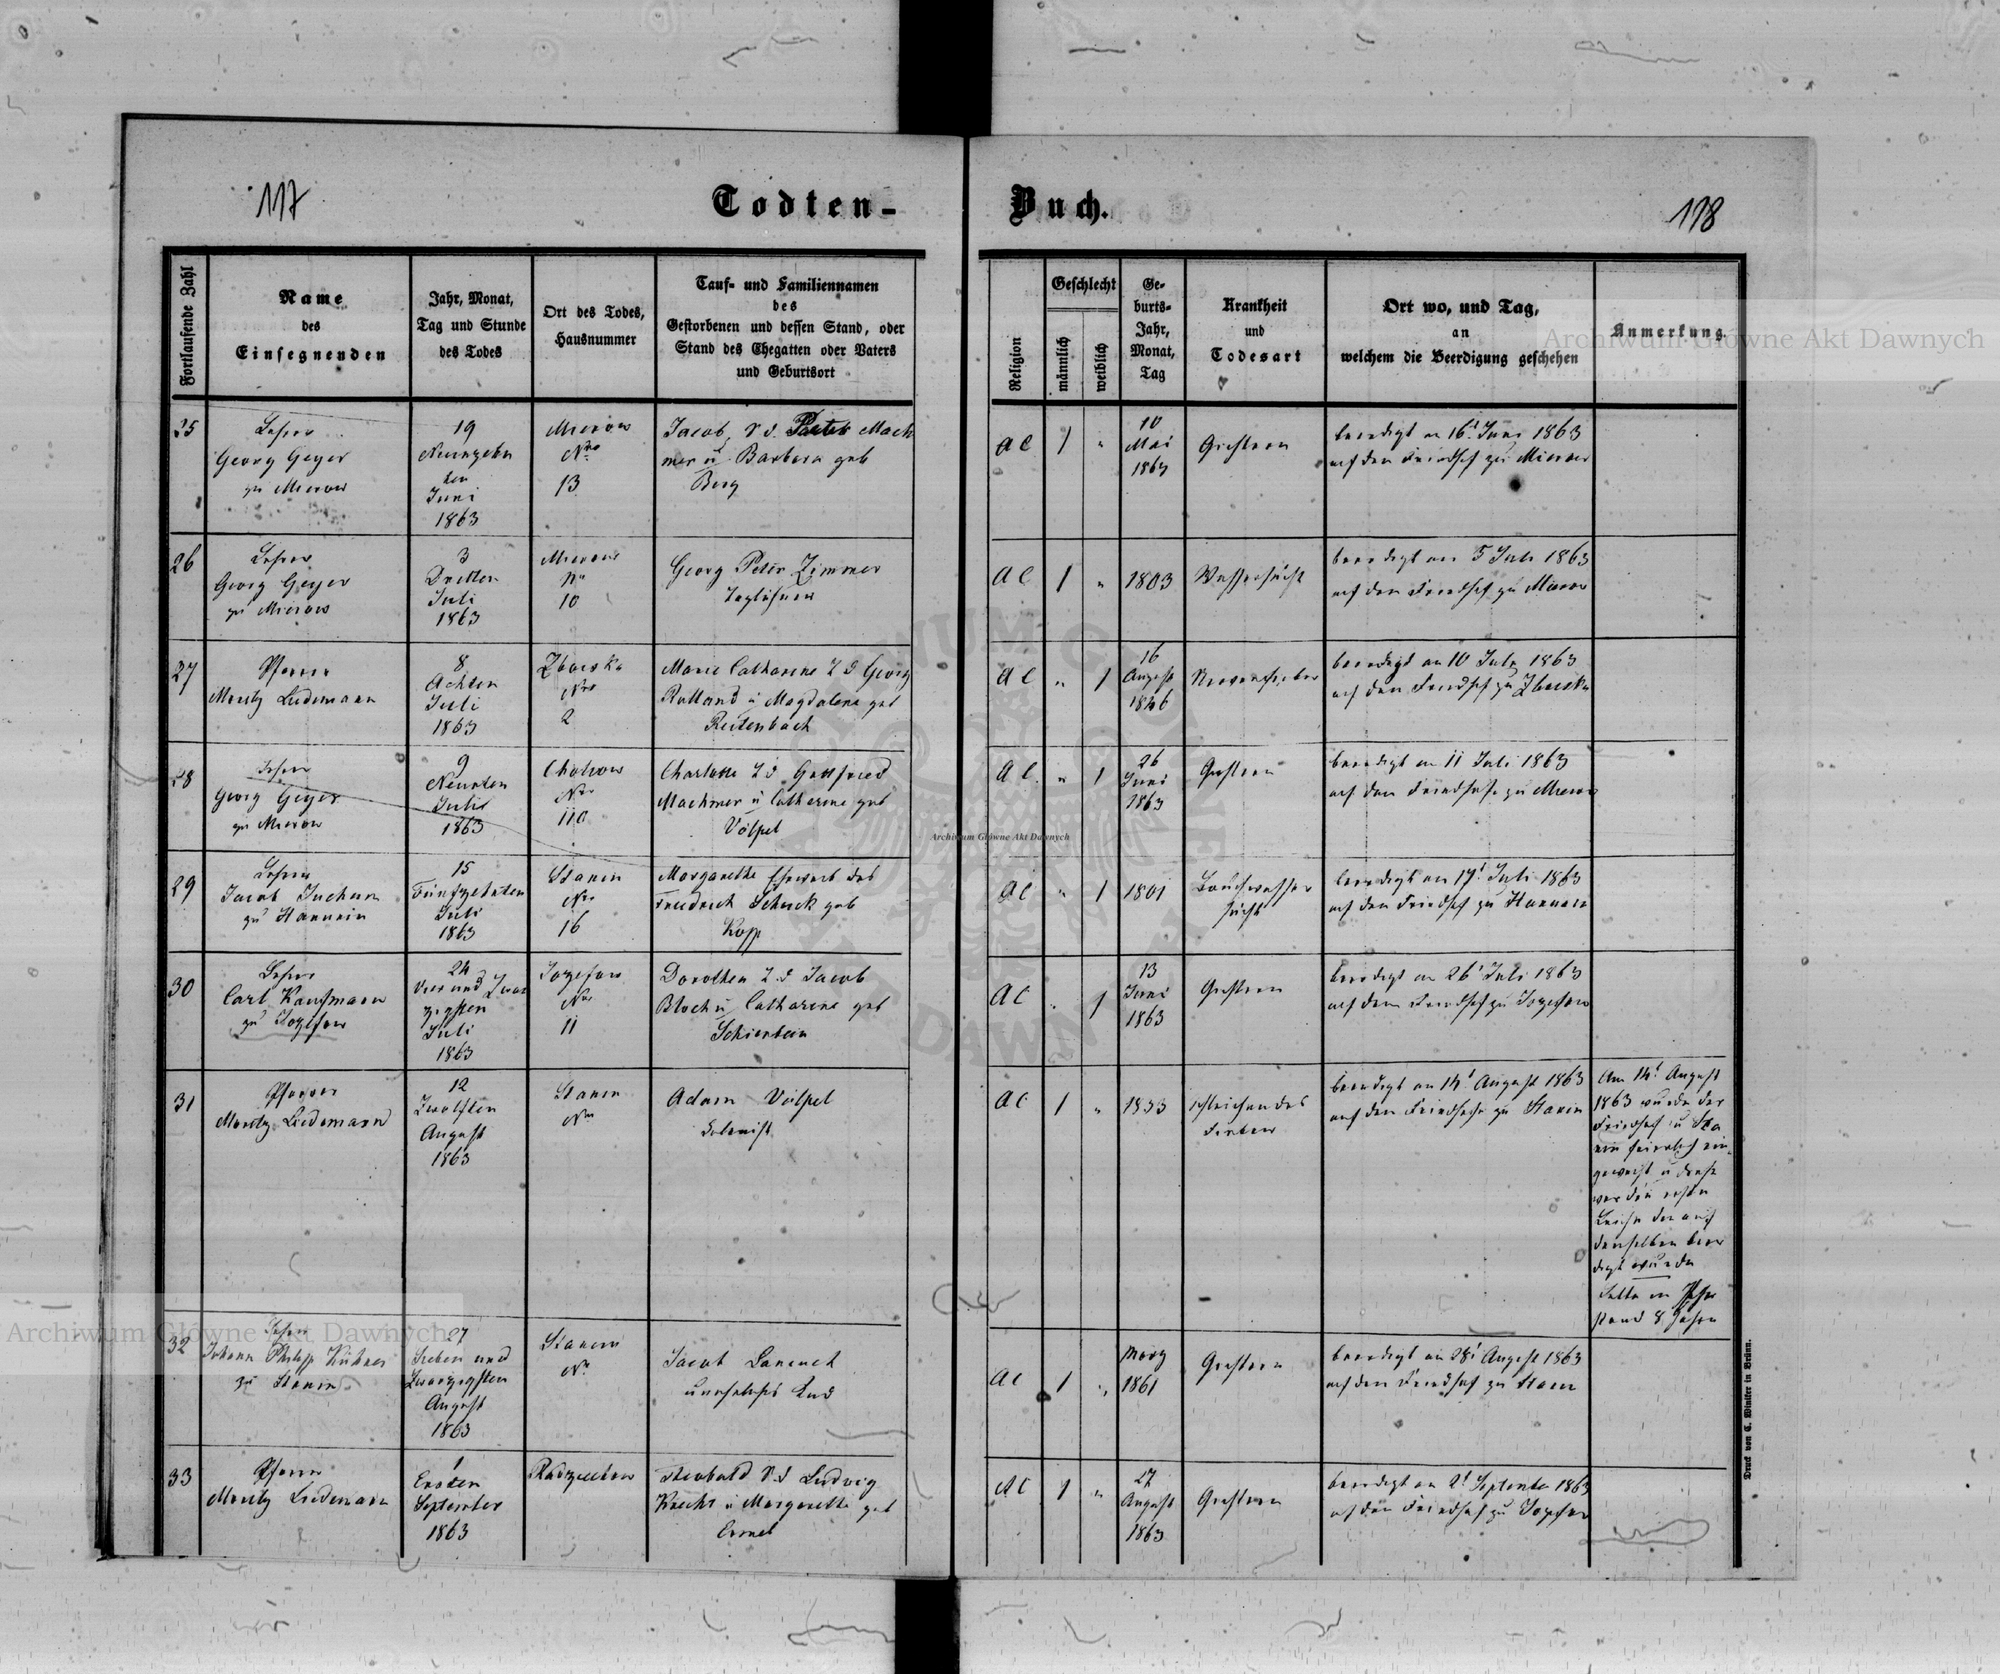 117
Todten-
Buch.
118
Fortlaufende Zahl
Name
des
Einsegnenden
Jahr, Monat,
Tag und Stunde
des Todes
Ort des Todes,
Hausnummer
Tauf- und Familiennamen
des
Gestorbenen und dessen Stand, oder
Stand des Ehegatten oder Vaters
und Geburtsort
Religion
Geschlecht
männlich
weiblich
Ge-
burts-
Jahr,
Monat,
Tag
Krankheit
und
Todesart
Ort wo, und Tag,
an
welchem die Beerdigung geschehen
Anmerkung.
25
Lehrer
Georg Geyer
zu Mierow
19
Neunzehn
ten
Juni
1863
Mierow
Nro
13
Jacob, S. d. Peter Mach
mer u Barbara geb
Berg
AC
1
"
10
Mai
1863
Gichtern
beerdigt am 16t Juni 1863
auf dem Friedhof zu Mierow
26
Lehrer
Georg Geyer
zu Mierow
3
Dritten
Juli
1863
Mierow
Nro
10
Georg Peter Zimmer
Taglöhner
AC
1
"
1803
Wassersucht
beerdigt am 5 Juli 1863
auf dem Friedhof zu Mierow
27
Pfarrer
Moritz Lademann
8
Achten
Juli
1863
Zboiska
Nro
2
Marie Catharine T d Georg
Rolland u Magdalena geb
Reitenbach
AC
"
1
16
August
1846
Nervenfieber
beerdigt am 10 July 1863
auf dem Friedhof zu Zboiska
28
Lehrer
Georg Geyer
zu Mierow
9
Neunten
Juli
1863
Cholojow
Nro
110
Charlotte T d Gottfried
Machmer u Catharine geb
Völpel
AC
"
1
26
Juni
1863
Gichtern
beerdigt am 11 Juli 1863
auf dem Friedhofe zu Mierow
29
Lehrer
Jacob Juchum
zu Hanunin
15
Fünfzehnten
Juli
1863
Stanin
Nro
16
Margarethe Eheweib des
Friedrich Schick geb
Kopp
AC
"
1
1801
Bauchwasser
sucht
beerdigt am 17t Juli 1863
auf dem Friedhof zu Hanunin
30
Lehrer
Carl Kaufmann
zu Jozefow
24
Vier und Zwan
zigsten
Juli
1863
Jozefow
Nro
11
Dorothea T d Jacob
Bloch u Catharine geb
Schierbein
AC
"
1
13
Juni
1863
Gichtern
beerdigt am 26t Juli 1863
auf dem Friedhof zu Jozefow
31
Pfarrer
Moritz Lademann
12
Zwölften
August
1863
Stanin
Nro
Adam Völpel
Colonist
AC
1
"
1833
schleichendes
Fieber
beerdigt am 14t August 1863
auf dem Friedhofe zu Stanin
Am 14t August
1863 wurde der
Friedhof zu Sta
nin feierlich ein-
geweiht u dieß
war die erste
Leiche die auf
demselben beer
digt wurde
32
Lehrer
Johann Philipp Kühner
zu Stanin
27
Sieben und
Zwanzigsten
August
1863
Stanin
Nro
Jacob
uneheliches Kind
AC
1
"
März
1861
Gichtern
beerdigt am 28t August 1863
auf dem Friedhof zu Stanin
33
Pfarrer
Moritz Lademann
1
Ersten
September
1863
Radziechow
Theobald S. d Ludwig
Knecht u Margarethe geb
Ermel
AC
1
"
27
August
1863
Gichtern
beerdigt am 2t September 1863
auf dem Friedhof zu Jozefow
Druck von C. Winiker in Brünn.
Archiwum Główne Akt Dawnych
Archiwum Główne Akt Dawnych
Archiwum Główne Akt Dawnych